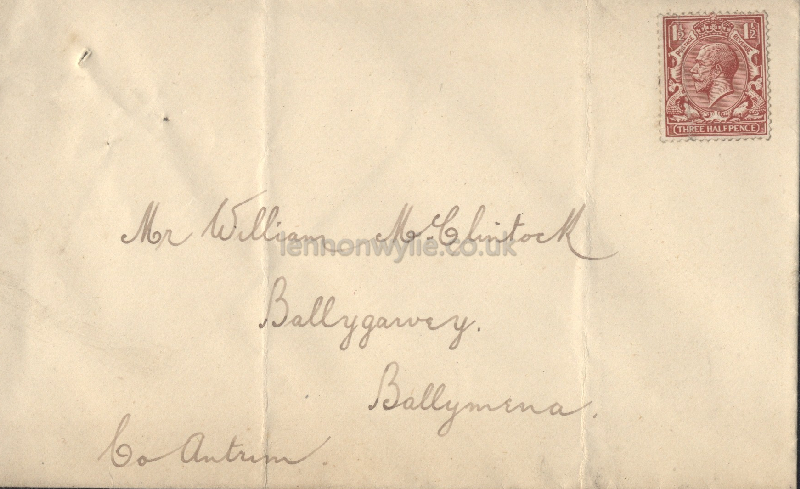 1½ 1½
POSTAGE REVENUE
THREE HALFPENCE
Mr William McClintock
lennonwylie.co.uk
Ballygarvey.
Ballymena.
Co Antrim.